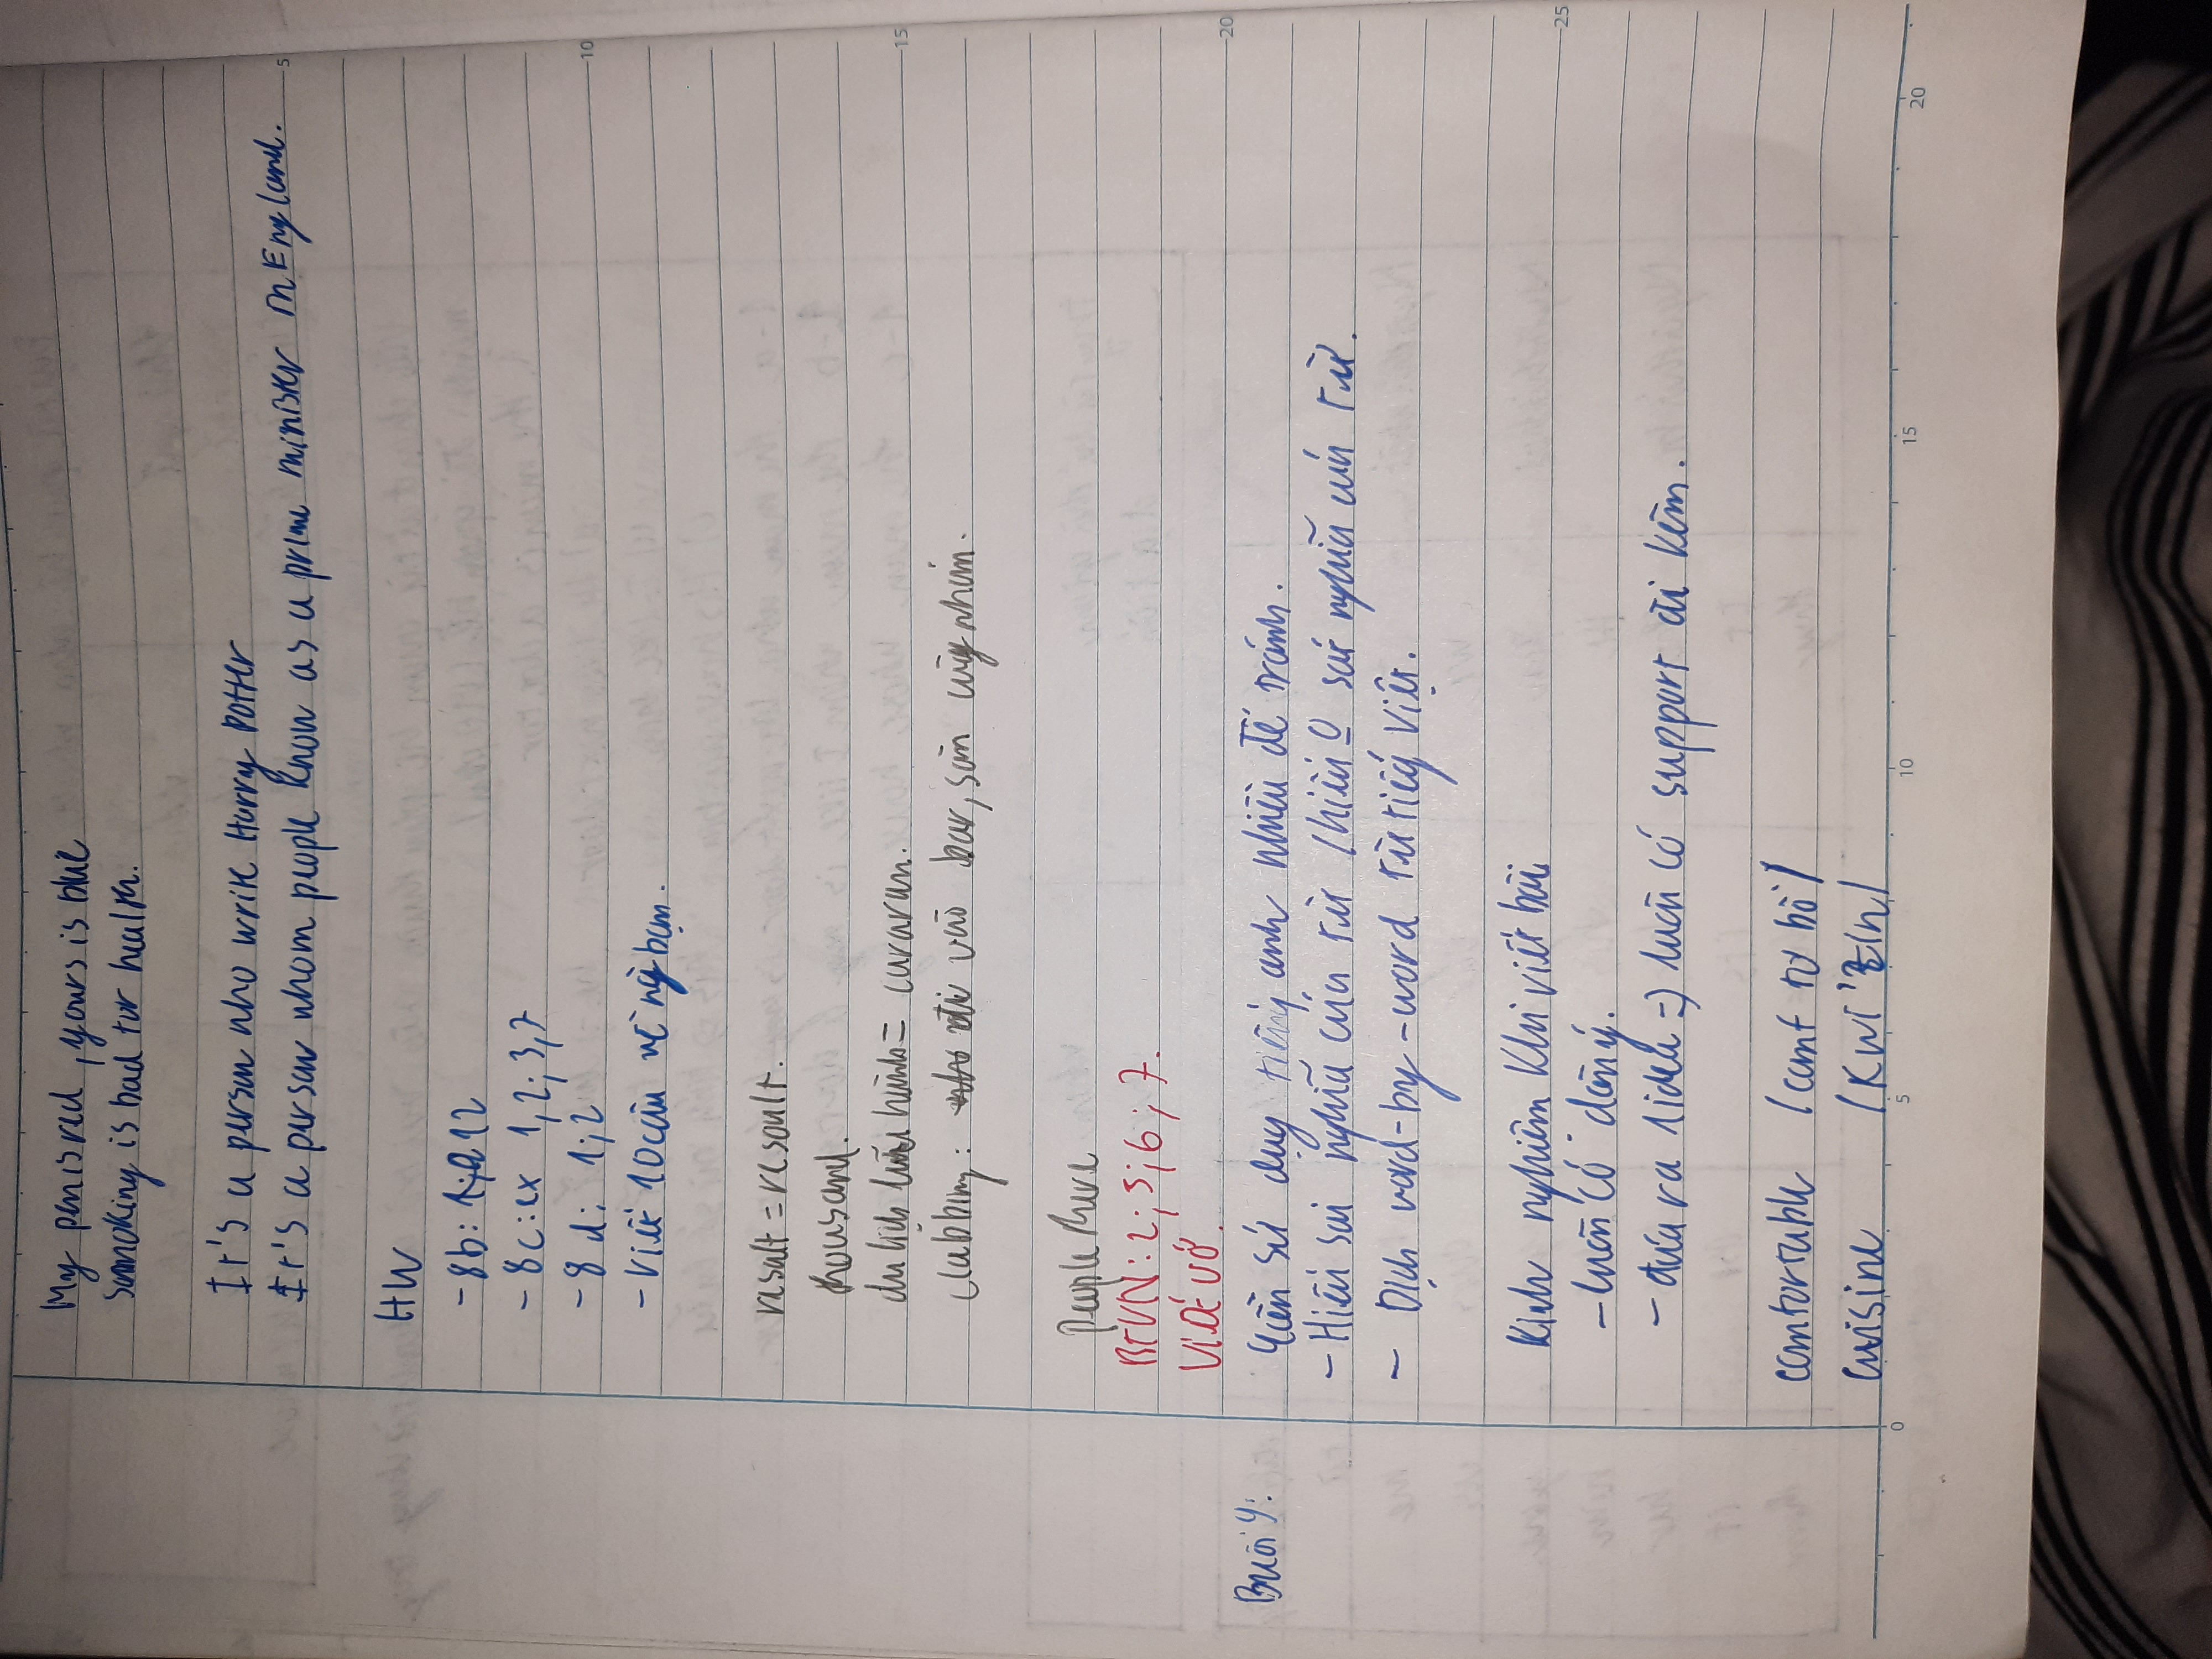 My pen is red, yours is blue
Smoking is bad for health.
It's a person who write Harry Potter
It's a person whom people know as a prime minister in England.
HW
- 8b: 12
- 8c: ex 1, 2; 3, 7
- 8d: 1; 2
- Viết 10 câu về ng bạn.
result = resoult.
thousand.
du lịch lưu hành = cararan.
clubbing: vào bar, sàn cùng nhóm.
People there
BTVN: 2; 5; 6; 7.
Viết vở.
Buổi 9:
Cần sử dụng tiếng anh nhiều để tránh.
- Hiểu sai nghĩa của từ / hiểu sai nghĩa của từ.
- Dịch word-by-word từ tiếng Việt.
Kinh nghiệm khi viết bài
- luôn có dàn ý.
- đưa ra 1 idea => luôn có support đi kèm.
comfortable /comf tơ bồ/
cuisine /kwi'zin/